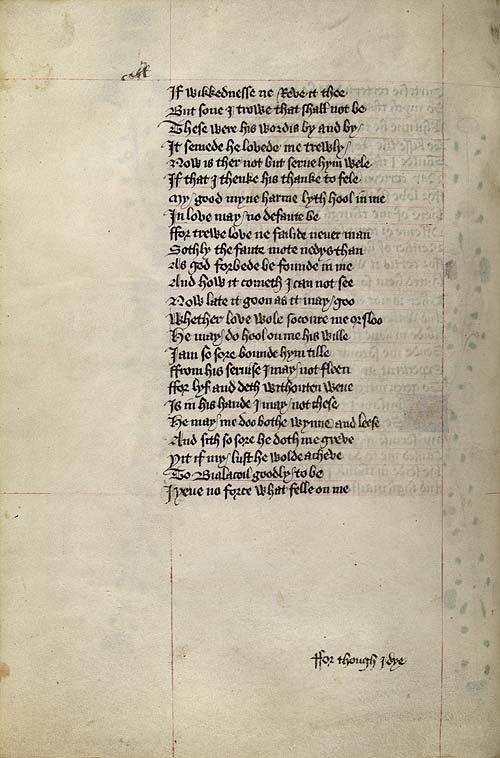 If wikkednesse ne Reve it thee
But sone I trowe that shall not be
These were his wordis by and by
It semede he lovede me trewly
Now is ther not but serue hym wele
If that I thenke his thanke to fele
My good myne harme lyth hool in me
In love may no defaute be
ffor trewe love ne failide neuer man
Sothly the faute mote nedys than
As god forbede be founde in me
And how it cometh I can not see
Now late it goon as it may goo
Whether love wole socoure me or sloo
He may do hool on me his wille
I am so sore bounde hym tille
ffrom his seruise I may not fleen
ffor lyf and deth withouten wene
Is in his hande I may not chese
He may me doo bothe wynne and leese
And sith so sore he doth me greve
Yit if my lust he wolde acheve
To Bialacoil goodly to be
I yeue no force what felle on me
ffor though I dye